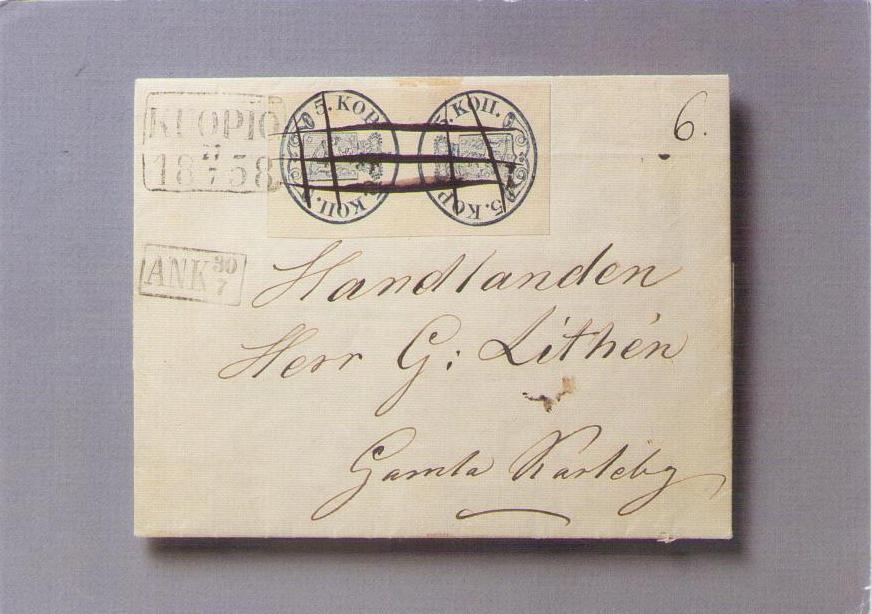 KUOPIO
18 58
5. KOP. 5. КОП.
5. КОП. 5. KOP.
6.
ANK 30
7
Handlanden
Herr G: Lithén
Gamla Karleby